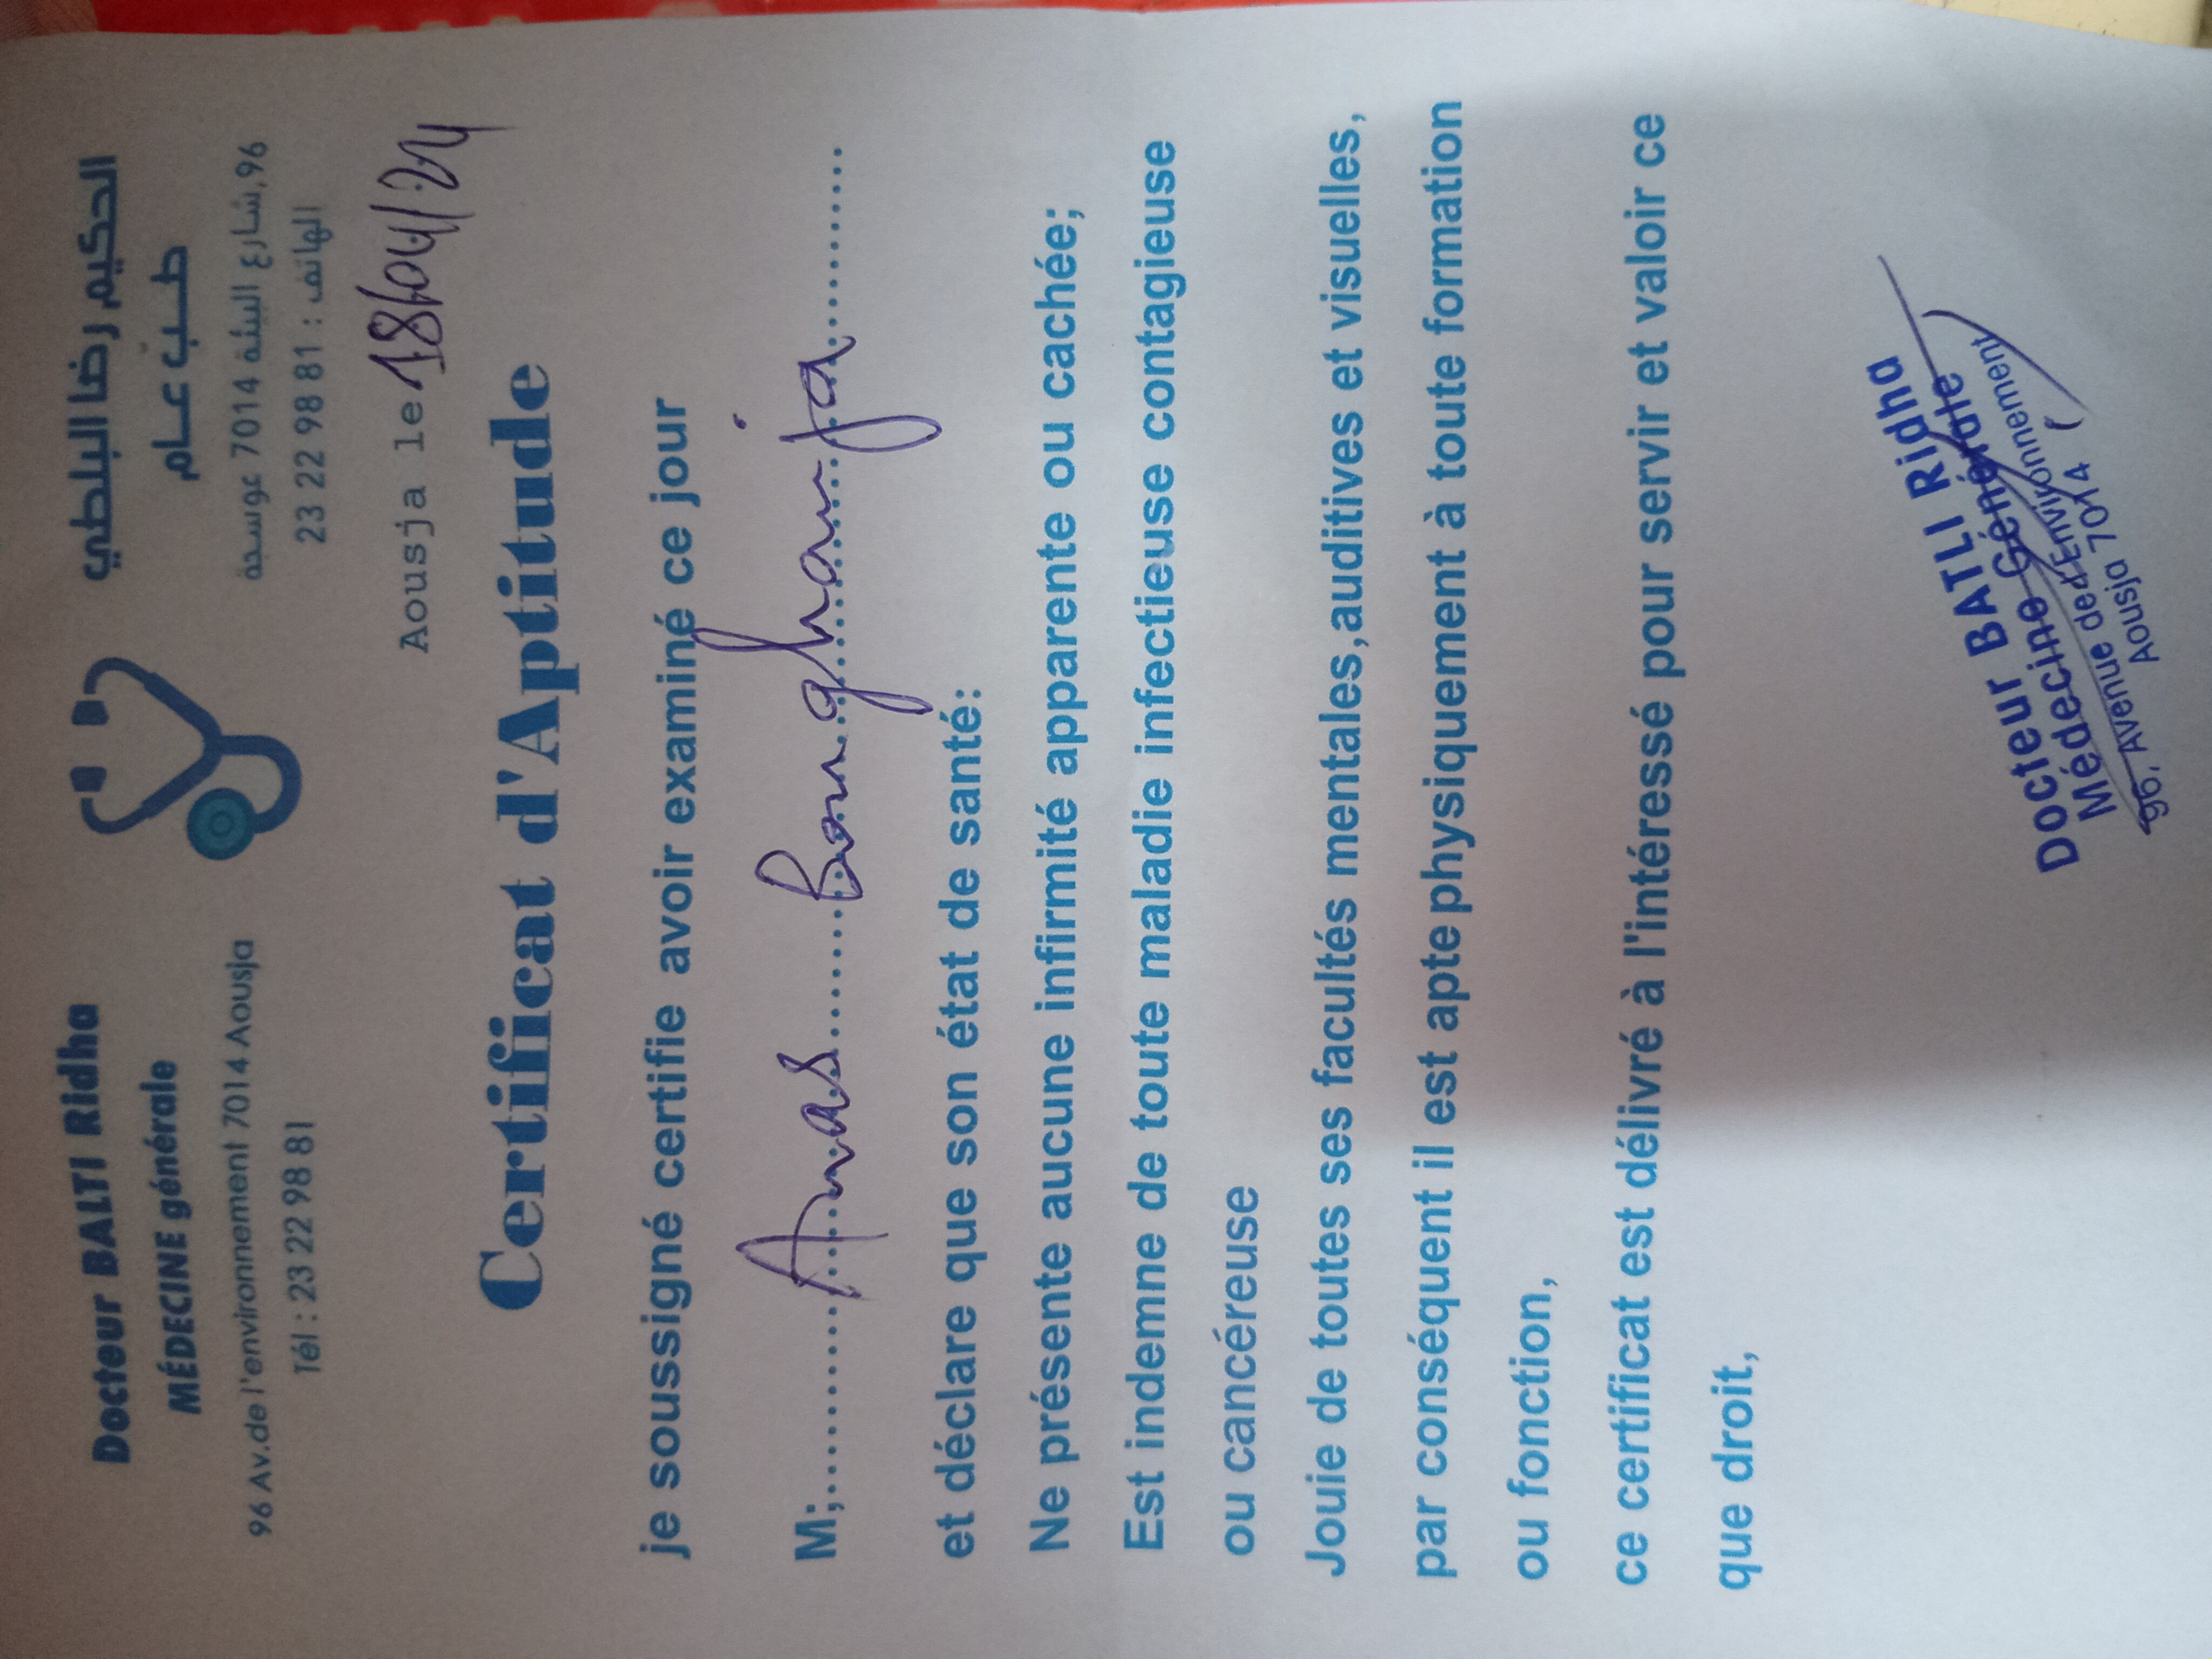 Docteur BALTI Ridha
MÉDECINE générale
96 Av.de l'environnement 7014 Aousja
Tél : 23 22 98 81
الحكيم رضا البلطي
طب عام
96,شارع البيئة 7014 عوسجة
الهاتف : 81 98 22 23
Aousja le 18/04/24
Certificat d'Aptitude
je soussigné certifie avoir examiné ce jour
M;.......... Anas .......... Boughanja ..........
et déclare que son état de santé:
Ne présente aucune infirmité apparente ou cachée;
Est indemne de toute maladie infectieuse contagieuse
ou cancéreuse
Jouie de toutes ses facultés mentales,auditives et visuelles,
par conséquent il est apte physiquement à toute formation
ou fonction,
ce certificat est délivré à l'intéressé pour servir et valoir ce
que droit,
Docteur BATLI Ridha
Médecine Générale
96, Avenue de l'Environnement
Aousja 7014